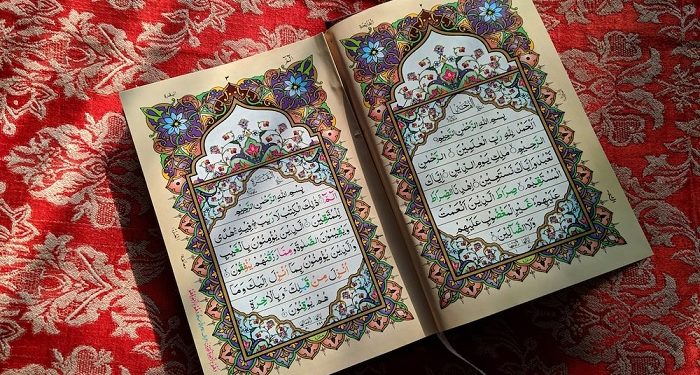 بِسْمِ اللهِ الرَّحْمٰنِ الرَّحِيْمِ
اَلْحَمْدُ لِلّٰهِ رَبِّ الْعَالَمِيْنَ الرَّحْمٰنِ
الرَّحِيْمِ مٰلِكِ يَوْمِ الدِّيْنِ اِيَّاكَ
نَعْبُدُ وَاِيَّاكَ نَسْتَعِيْنُ اِهْدِنَا الصِّرَاطَ
الْمُسْتَقِيْمَ صِرَاطَ الَّذِيْنَ اَنْعَمْتَ
عَلَيْهِمْ غَيْرِ الْمَغْضُوْبِ عَلَيْهِمْ
وَلَا الضَّالِّيْنَ
بِسْمِ اللهِ الرَّحْمٰنِ الرَّحِيْمِ
الٓمّٓ ذٰلِكَ الْكِتٰبُ لَا رَيْبَ فِيْهِ هُدًى
لِّلْمُتَّقِيْنَ الَّذِيْنَ يُؤْمِنُوْنَ بِالْغَيْبِ
وَيُقِيْمُوْنَ الصَّلٰوةَ وَمِمَّا رَزَقْنٰهُمْ يُنْفِقُوْنَ
وَالَّذِيْنَ يُؤْمِنُوْنَ بِمَا اُنْزِلَ اِلَيْكَ وَمَا
اُنْزِلَ مِنْ قَبْلِكَ وَبِالْاٰخِرَةِ
هُمْ يُوْقِنُوْنَ